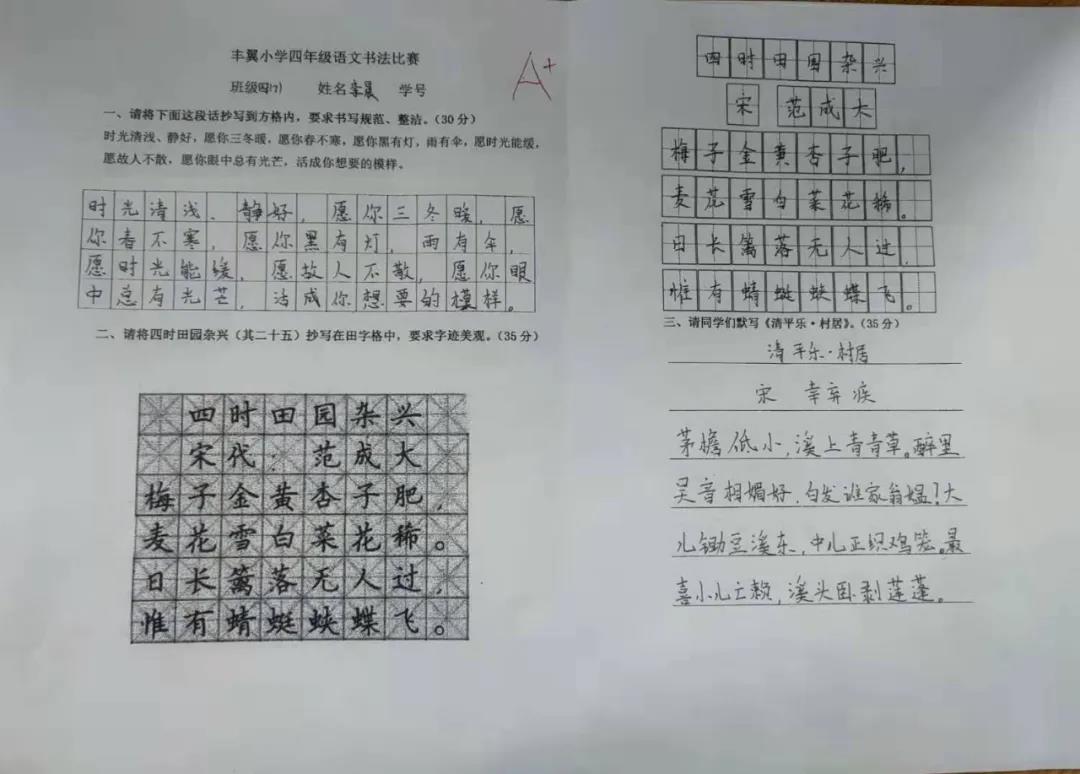 丰翼小学四年级语文书法比赛
A+
班级四(7) 姓名李晨 学号
一、请将下面这段话抄写到方格内，要求书写规范、整洁。（30分）
时光清浅、静好，愿你三冬暖，愿你春不寒，愿你黑有灯，雨有伞，愿时光能缓，
愿故人不散，愿你眼中总有光芒，活成你想要的模样。
时光清浅、静好，愿你三冬暖，愿
你春不寒，愿你黑有灯，雨有伞，
愿时光能缓，愿故人不散，愿你眼
中总有光芒，活成你想要的模样。
二、请将四时田园杂兴（其二十五）抄写在田字格中，要求字迹美观。（35分）
四时田园杂兴
宋代：范成大
梅子金黄杏子肥，
麦花雪白菜花稀。
日长篱落无人过，
惟有蜻蜓蛱蝶飞。
四时田园杂兴
宋 范成大
梅子金黄杏子肥，
麦花雪白菜花稀。
日长篱落无人过，
惟有蜻蜓蛱蝶飞。
三、请同学们默写《清平乐·村居》。（35分）
清平乐·村居
宋 辛弃疾
茅檐低小，溪上青青草。醉里
吴音相媚好，白发谁家翁媪？大
儿锄豆溪东，中儿正织鸡笼。最
喜小儿亡赖，溪头卧剥莲蓬。